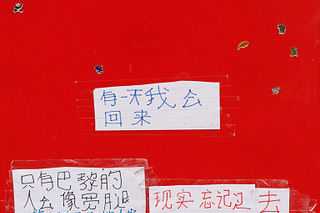 有一天我会
回来
只有巴黎的
人去像宽腿
现实 忘记过 去